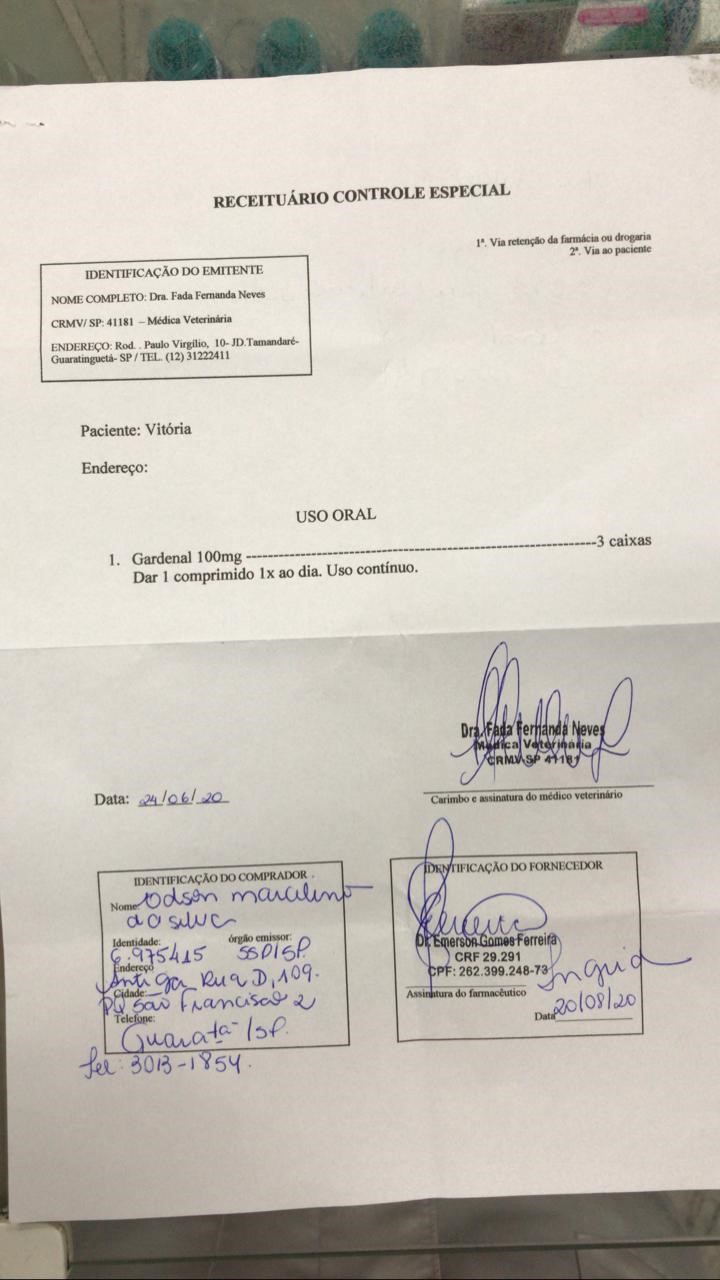 RECEITUÁRIO CONTROLE ESPECIAL
1ª. Via retenção da farmácia ou drogaria
2ª. Via ao paciente
IDENTIFICAÇÃO DO EMITENTE
NOME COMPLETO: Dra. Fada Fernanda Neves
CRMV/ SP: 41181 – Médica Veterinária
ENDEREÇO: Rod. . Paulo Virgílio, 10- JD.Tamandaré-
Guaratinguetá- SP / TEL. (12) 31222411
Paciente: Vitória
Endereço:
USO ORAL
1. Gardenal 100mg ------------------------------------------------------------------3 caixas
Dar 1 comprimido 1x ao dia. Uso contínuo.
Dra. Fada Fernanda Neves
Médica Veterinária
CRMV-SP 41181
Data: 24/06/20
Carimbo e assinatura do médico veterinário
IDENTIFICAÇÃO DO COMPRADOR
Nome: Odson marcelino
da silva
Identidade: órgão emissor:
6.975415 SSP/SP.
Endereço
Antiga Rua D, 109.
Cidade:
PQ São Francisco 2
Telefone:
Guaratª/SP.
Tel: 3013-1854.
IDENTIFICAÇÃO DO FORNECEDOR
Dr. Emerson Gomes Ferreira
CRF 29.291
CPF: 262.399.248-73
Ingrid
Assinatura do farmacêutico
Data 20/08/20